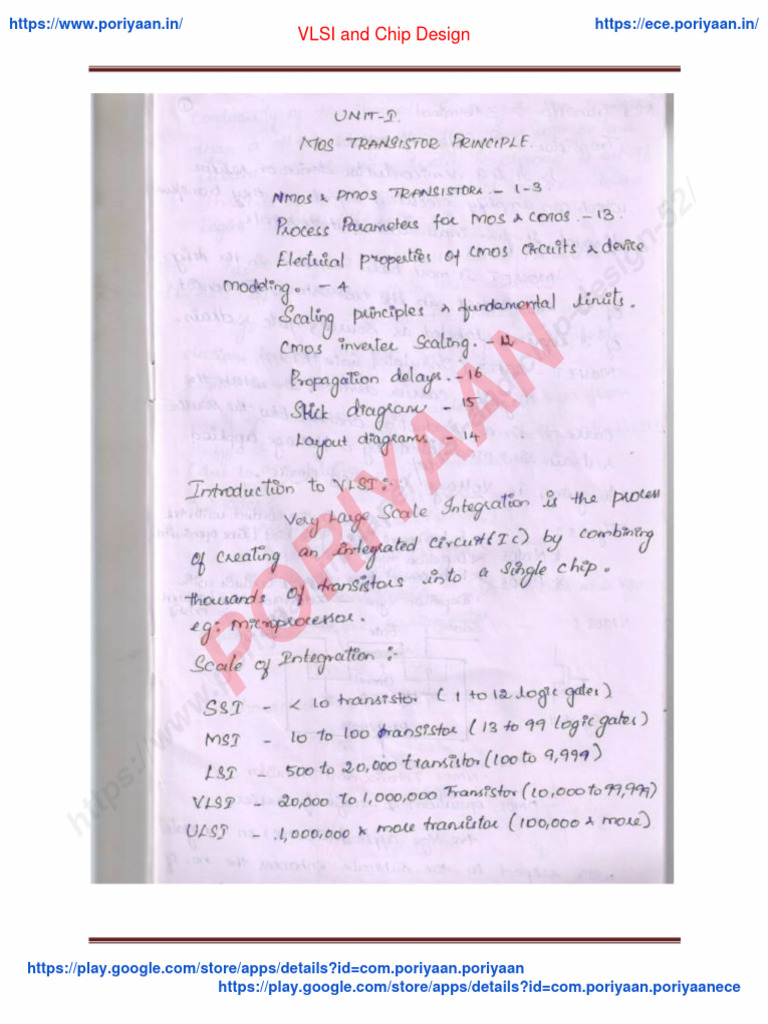 https://www.poriyaan.in/
https://ece.poriyaan.in/
VLSI and Chip Design
UNIT-I.
MOS TRANSISTOR PRINCIPLE.
NMOS & PMOS TRANSISTORS - 1-3
Process Parameters for MOS & CMOS. - 13.
Electrical properties of CMOS circuits & device
modeling. - 4
Scaling principles & fundamental limits.
CMOS inverter Scaling. - 12
Propagation delays. - 16
Stick diagram - 15
Layout diagrams - 14
Introduction to VLSI :-
Very Large Scale Integration is the process
of creating an integrated circuit (IC) by combining
thousands of transistors into a single chip.
eg: microprocessor.
Scale of Integration :-
SSI - < 10 transistor ( 1 to 12 logic gates)
MSI - 10 to 100 transistor (13 to 99 logic gates)
LSI - 500 to 20,000 transistor (100 to 9,999)
VLSI - 20,000 to 1,000,000 Transistor (10,000 to 99,999)
ULSI - 1,000,000 & more transistor (100,000 & more)
PORIYAAN
https://play.google.com/store/apps/details?id=com.poriyaan.poriyaan
https://play.google.com/store/apps/details?id=com.poriyaan.poriyaanece